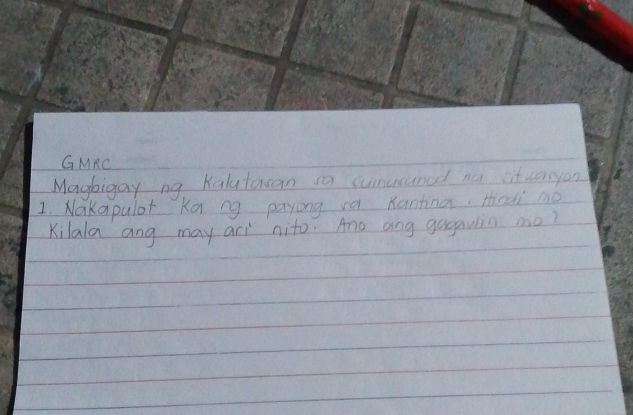 GMRC
Magbigay ng Kalutasan sa sumusunod na sitwasyon
1. Nakapulot ka ng payong sa Kantina. Hindi mo
Kilala ang may ari nito. Ano ang gagawin mo?